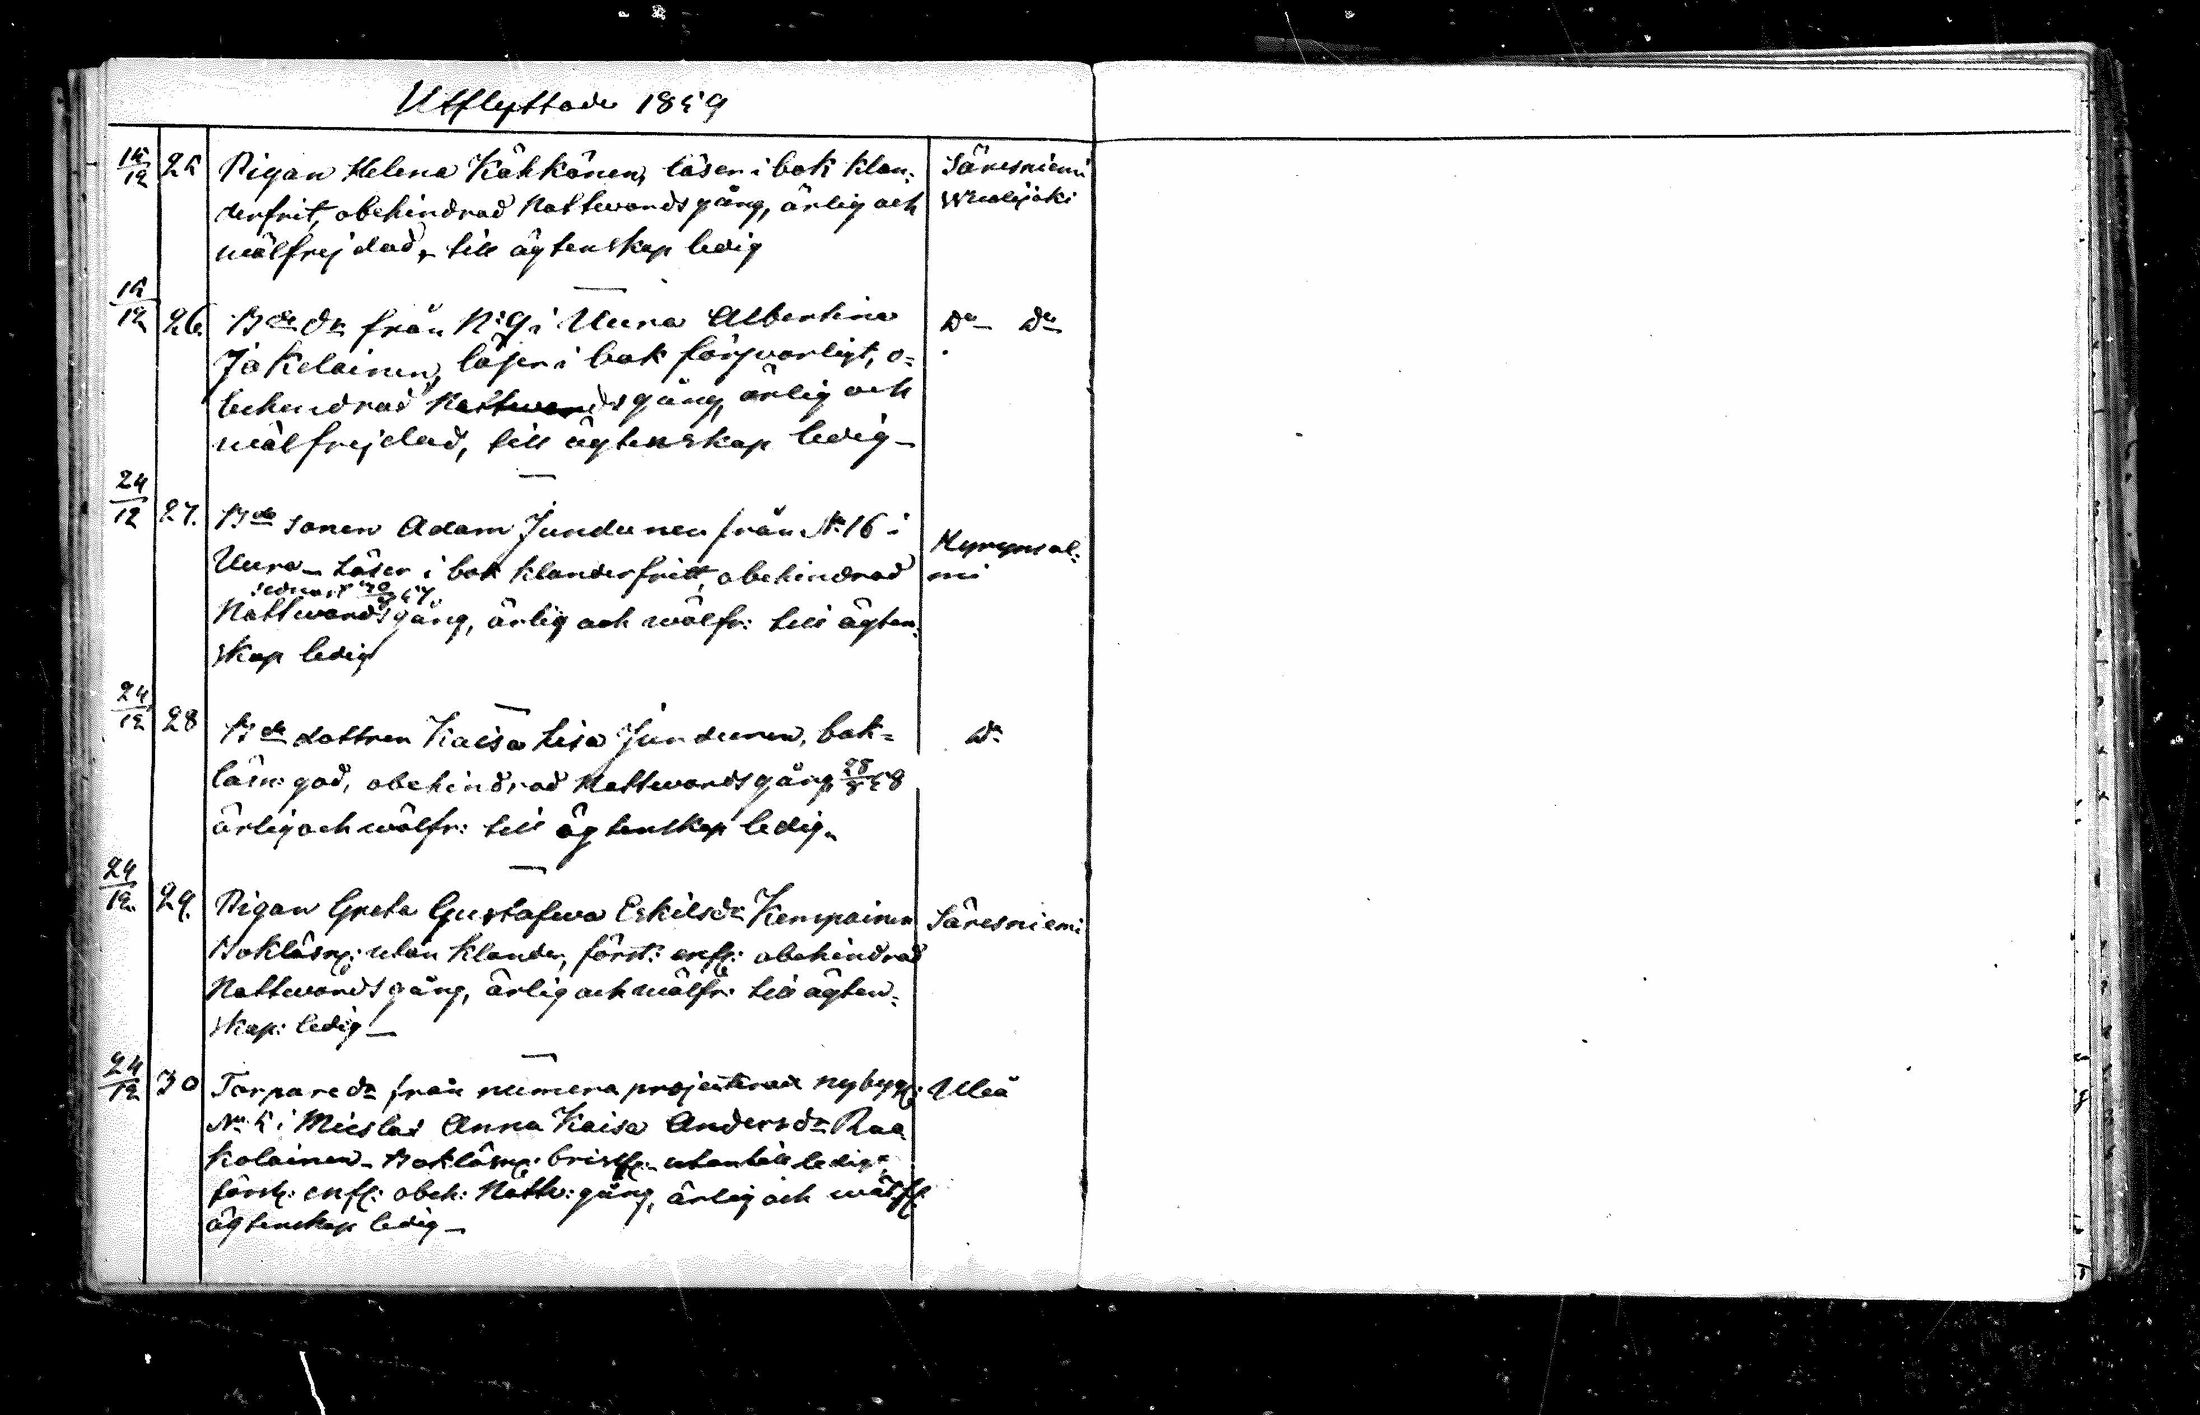 Utflyttade 1859
15/12 25 Pigan Helena Kähkönen, läser i bok klan= Säresniemi
derfrit, obehindrad Nattwardsgång, ärlig och Wuolijoki
wälfrejdad, till ägtenskap ledig
15/12 26. Bde dr från N:o 9 i Uura Albertina Do Do
Jakelainen, läser i bok försvarligt, o=
behindrad Nattwardsgång, ärlig och
wälfrejdad, till ägtenskap ledig
24/12 27. Bde sonen Adam Jundunen från No 16 i Hyrynsal=
Uura – Läser i bok klanderfritt, obehindrad mi
sednast
Nattwardsgång, ärlig och wälfr: till ägten=
skap ledig
24/12 28 Bde dottren Kaisa Lisa Jundunen, bok= Do
läsn: god, obehindrad Nattwardsgång 28/8 58
ärlig och wälfr: till ägtenskap ledig.
24/12 29. Pigan Greta Gustafwa Eskilsdr Kemppainen Säresniemi
Bokläsng: utan klander, först: enf: obehindrad
Nattwardsgång, ärlig och wälfr: till ägten=
skap: ledig –
24/12 30 Torparedr från numera projecterade nybygg: Uleå
No 5 i Mieslax Anna Kaisa Andersdr Raa
kolainen – Bokläsng: bristf: utantill ledigt
först: enf: obeh: Nattw: gång, ärlig och wälfr:
ägtenskap ledig –